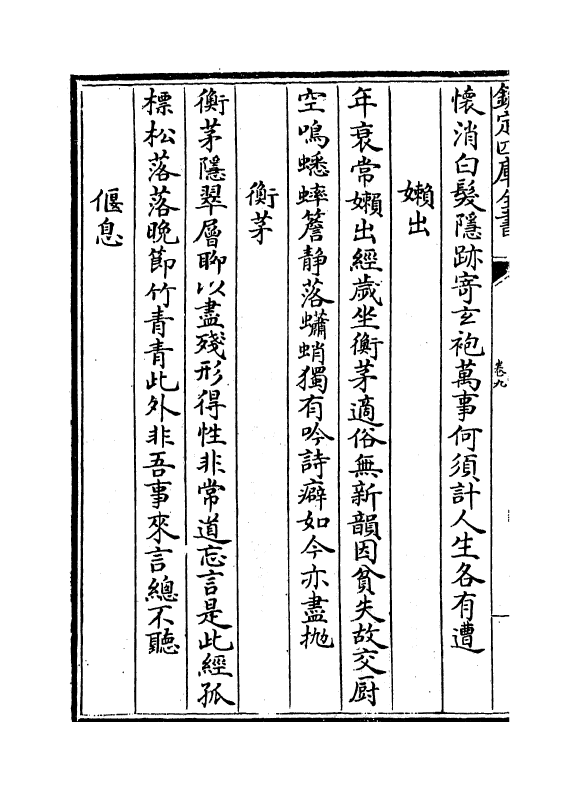 欽定四庫全書
卷九
懷消白髮隱跡寄玄袍萬事何須計人生各有遭
嬾出
年衰常嬾出經歲坐衡茅適俗無新韻因貧失故交厨
空鳴蟋蟀簷靜落蠨蛸獨有吟詩癖如今亦盡拋
衡茅
衡茅隱翠層聊以盡殘形得性非常道忘言是此經孤
標松落落晚節竹青青此外非吾事來言總不聽
偃息